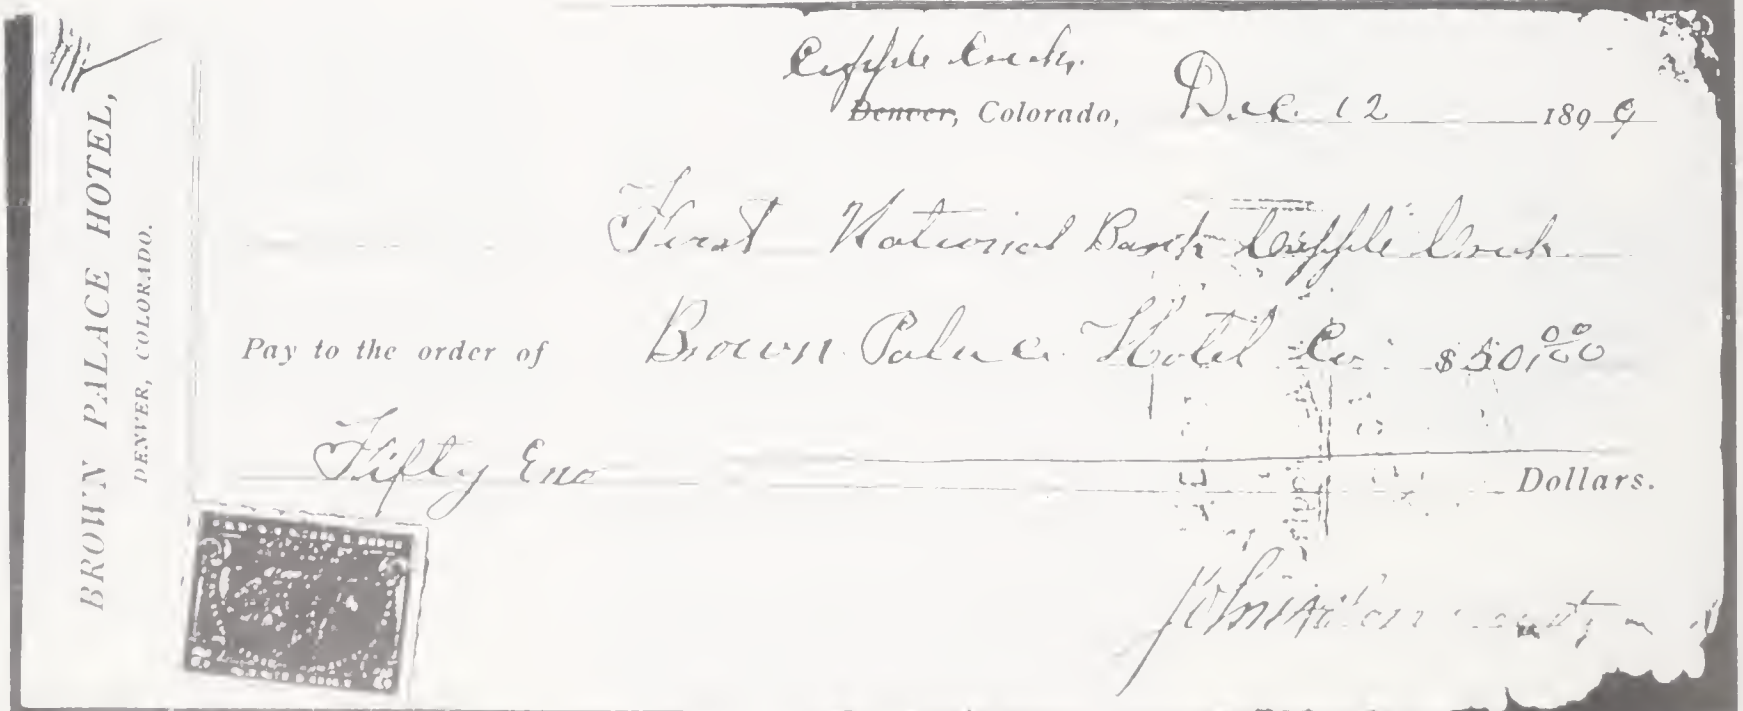 BROWN PALACE HOTEL,
DENVER, COLORADO.
Cripple Creek,
Denver, Colorado, Dec. 12 1899
First National Bank Cripple Creek
Pay to the order of Brown Palace Hotel Co. $50,00
Fifty and Dollars.
John